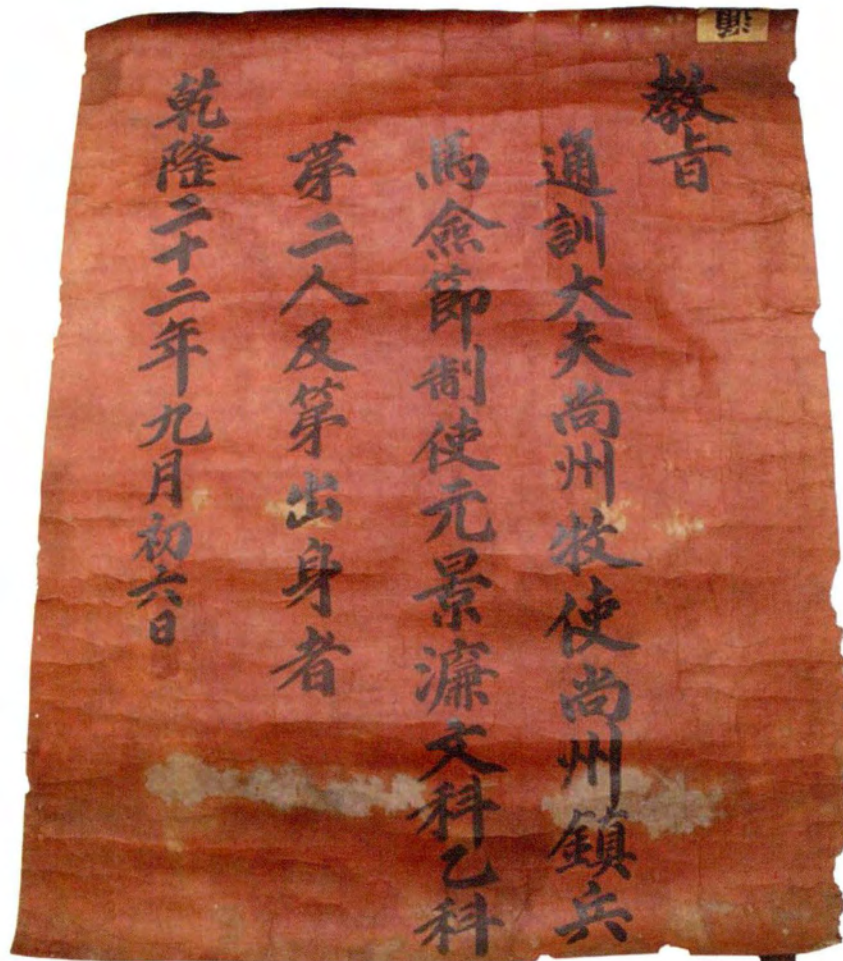 教旨
通訓大夫尚州牧使尚州鎮兵
馬僉節制使元景濂文科乙科
第二人及第出身者
乾隆二十二年九月初六日